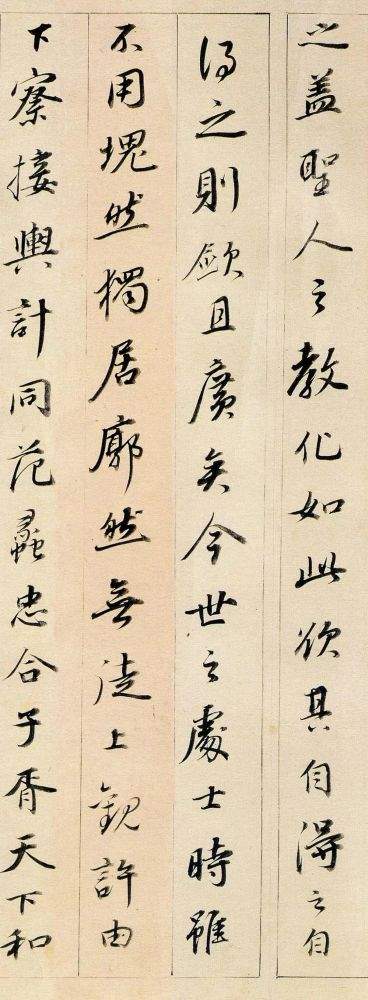 之蓋聖人之教化如此欲其自得之自
得之則且廣矣今世之處士時雖
不用塊然獨居廓然無徒上觀許由
下察接輿計同范蠡忠合子胥天下和